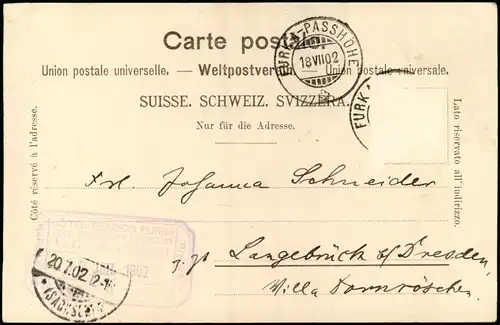 Carte postale
FURKA-PASSHÖHE
18 VII 02
Union postale universelle. — Weltpostverein — Union postale universale.
SUISSE. SCHWEIZ. SVIZZERA.
FURKA
Nur für die Adresse.
Côté réservé à l'adresse.
Lato riservato all' indirizzo.
Frl. Johanna Schneider
HOTEL PENSION FURKA
1902
z. Zt. Langebrück b/Dresden
Villa Dornröschen.
20.7.02
(SACHSEN)